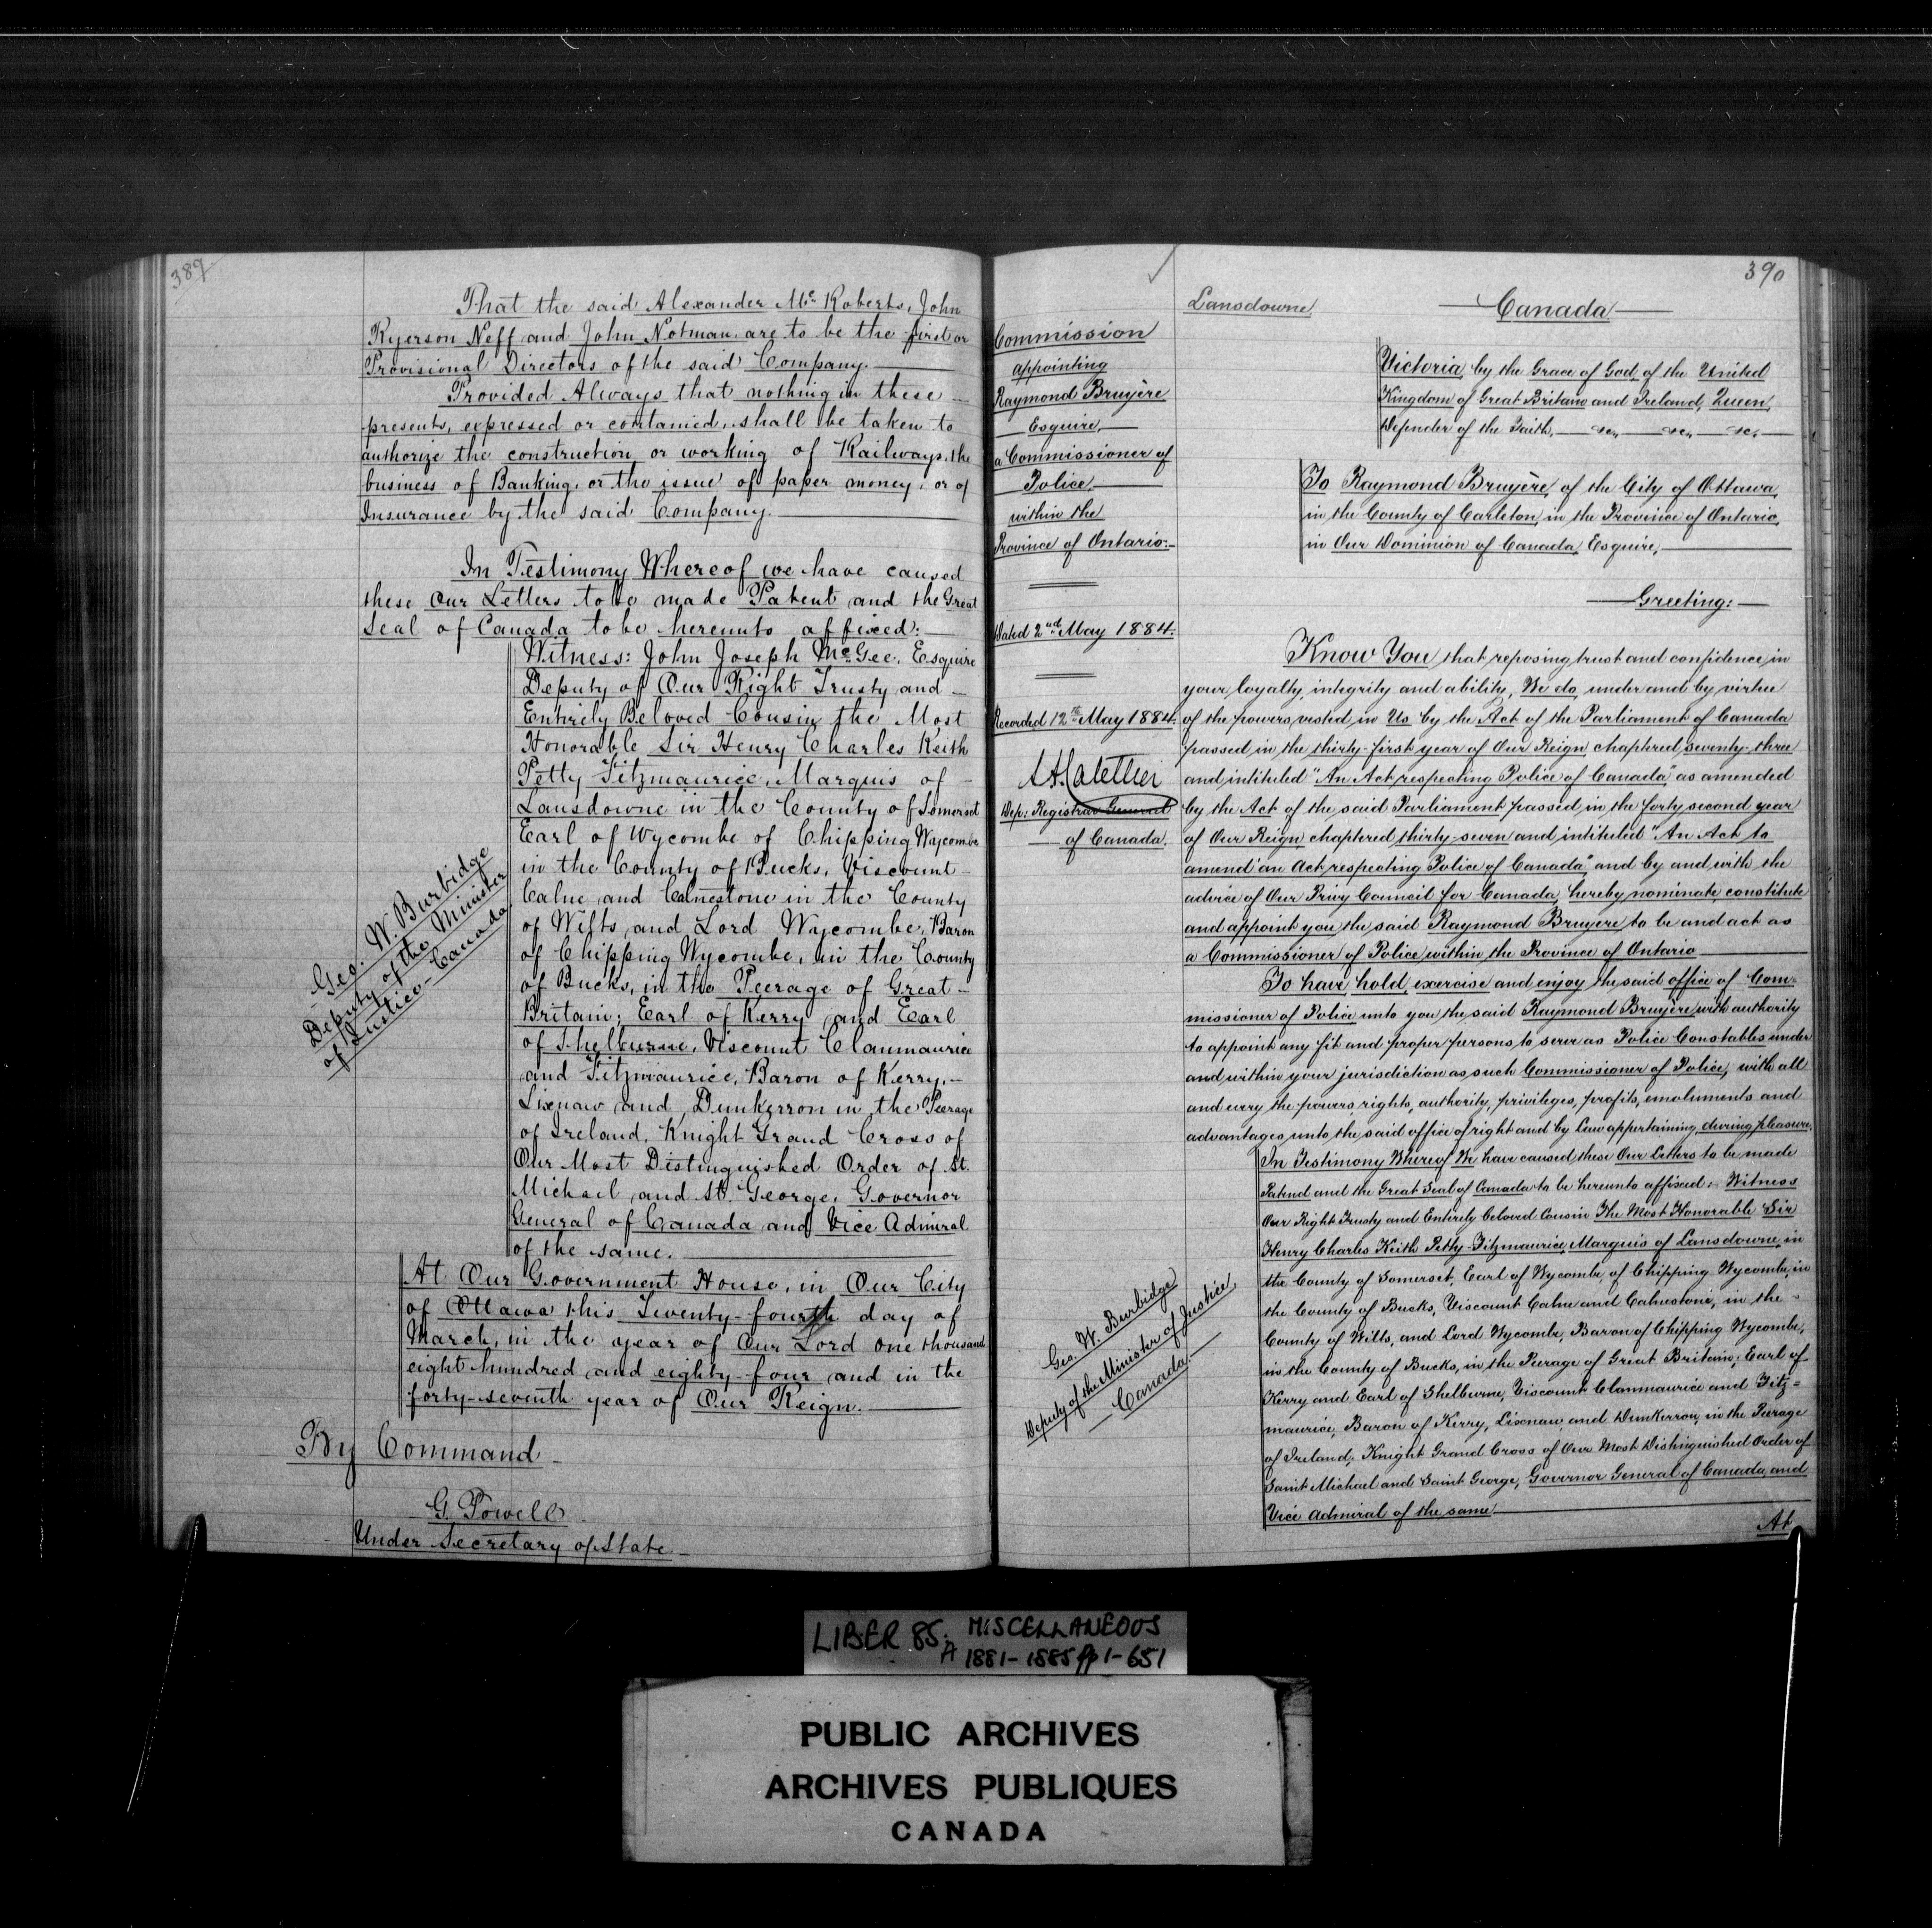 389
That the said Alexander Mc. Roberts, John
Ryerson Neff and John Notman are to be the first or
Provisional Directors of the said Company.
Provided Always that nothing in these
presents, expressed or contained, shall be taken to
authorize the construction or working of Railways, the
business of Banking, or the issue of paper money, or of
Insurance by the said Company.
In Testimony Whereof we have caused
these Our Letters to be made Patent and the Great
Seal of Canada to be hereunto affixed:
Witness: John Joseph McGee, Esquire
Deputy of Our Right Trusty and
Entirely Beloved Cousin the Most
Honorable Sir Henry Charles Keith
Petty Fitzmaurice, Marquis of
Lansdowne in the County of Somerset
Earl of Wycombe of Chipping Wycombe
in the County of Bucks, Viscount
Calne and Calnestone in the County
of Wilts and Lord Wycombe, Baron
of Chipping Wycombe, in the County
of Bucks, in the Peerage of Great
Britain; Earl of Kerry and Earl
of Shelburne, Viscount Clanmaurice
and Fitzmaurice, Baron of Kerry,
Lixnaw and Dunkerron in the Peerage
of Ireland, Knight Grand Cross of
Our Most Distinguished Order of St.
Michael and St. George, Governor
General of Canada and Vice Admiral
of the same.
Geo. W. Burbidge
Deputy of the Minister
of Justice Canada
At Our Government House, in Our City
of Ottawa this Twenty-fourth day of
March, in the year of Our Lord one thousand
eight hundred and eighty-four and in the
forty-seventh year of Our Reign.
By Command
G. Powell
Under Secretary of State
390
Lansdowne
Canada
Commission
appointing
Raymond Bruyère
Esquire,
a Commissioner of
Police
within the
Province of Ontario:
Dated 2nd May 1884.
Recorded 12th May 1884.
Dep: Registrar General
of Canada.
Victoria, by the Grace of God, of the United
Kingdom of Great Britain and Ireland, Queen,
Defender of the Faith, &c, &c, &c.
To Raymond Bruyère, of the City of Ottawa,
in the County of Carleton, in the Province of Ontario,
in Our Dominion of Canada, Esquire,
Greeting:
Know You, that reposing trust and confidence in
your loyalty, integrity and ability, We do, under and by virtue
of the powers vested in Us by the Act of the Parliament of Canada
passed in the thirty-first year of Our Reign chaptred seventy-three
and intituled "An Act respecting Police of Canada," as amended
by the Act of the said Parliament passed in the forty second year
of Our Reign chaptred thirty-seven and intituled "An Act to
amend an Act respecting Police of Canada" and by and with the
advice of Our Privy Council for Canada, hereby nominate, constitute
and appoint you the said Raymond Bruyere to be and act as
a Commissioner of Police within the Province of Ontario
To have, hold, exercise and enjoy the said office of Com-
missioner of Police unto you the said Raymond Bruyère with authority
to appoint any fit and proper persons to serve as Police Constables under
and within your jurisdiction as such Commissioner of Police, with all
and every the powers, rights, authority, privileges, profits, emoluments and
advantages unto the said office of right and by Law appertaining, during pleasure.
In Testimony Whereof We have caused these Our Letters to be made
Patent and the Great Seal of Canada to be hereunto affixed: Witness
Our Right Trusty and Entirely beloved Cousin The Most Honorable Sir
Henry Charles Keith Petty-Fitzmaurice, Marquis of Lansdowne, in
the County of Somerset, Earl of Wycombe, of Chipping Wycombe, in
the County of Bucks, Viscount Calne and Calnestone, in the
County of Wilts, and Lord Wycombe, Baron of Chipping Wycombe,
in the County of Bucks, in the Peerage of Great Britain; Earl of
Kerry and Earl of Shelburne, Viscount Clanmaurice and Fitz=
maurice, Baron of Kerry, Lixnaw, and Dunkerron, in the Peerage
of Ireland; Knight Grand Cross of Our Most Distinguished Order of
Saint Michael and Saint George, Governor General of Canada, and
Vice Admiral of the same
Geo. W. Burbidge
Deputy of the Minister of Justice
Canada
At
LIBER 85. A MISCELLANEOUS
1881-1885 pp 1-651
PUBLIC ARCHIVES
ARCHIVES PUBLIQUES
CANADA